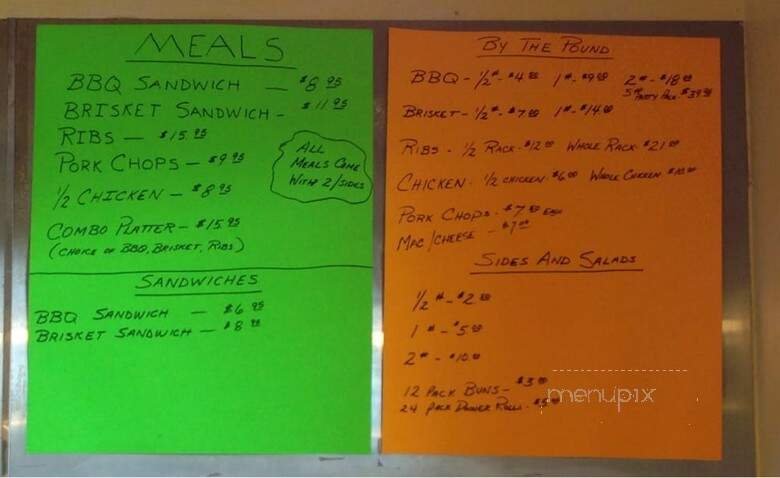 MEALS
BBQ SANDWICH — $8.95
BRISKET SANDWICH - $11.95
RIBS — $15.95
PORK CHOPS — $9.95
1/2 CHICKEN — $8.95
COMBO PLATTER — $15.95
(CHOICE OF BBQ, BRISKET, RIBS)
ALL
MEALS COME
WITH 2/SIDES
SANDWICHES
BBQ SANDWICH — $6.95
BRISKET SANDWICH — $8.95
BY THE POUND
BBQ - 1/2# - $4.00 1# - $9.00 2# - $18.00
5# PARTY PACK - $39.95
BRISKET - 1/2# - $7.00 1# - $14.00
RIBS - 1/2 RACK - $12.00 WHOLE RACK - $21.00
CHICKEN - 1/2 CHICKEN - $6.00 WHOLE CHICKEN - $10.00
PORK CHOPS - $7.00 EACH
MAC/CHEESE - $7.00
SIDES AND SALADS
1/2# - $2.00
1# - $5.00
2# - $10.00
12 PACK BUNS - $3.00
24 PACK DINNER ROLLS - $5.00
menupix